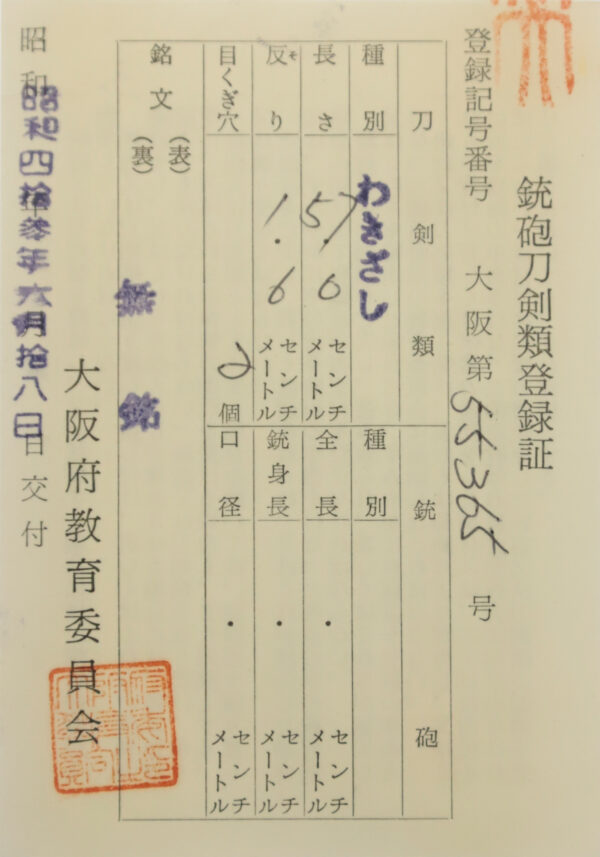 銃砲刀剣類登録証
登録記号番号 大阪第55365号
刀剣類 銃砲
種別 わきざし 種別
長さ 57.0 センチメートル 全長 . センチメートル
反り そ 1.6 センチメートル 銃身長 . センチメートル
目くぎ穴 2個 口径 . センチメートル
銘文 (表) 無銘
(裏)
大阪府教育委員会
昭和四拾参年六月拾八日
昭和 年 月 日交付